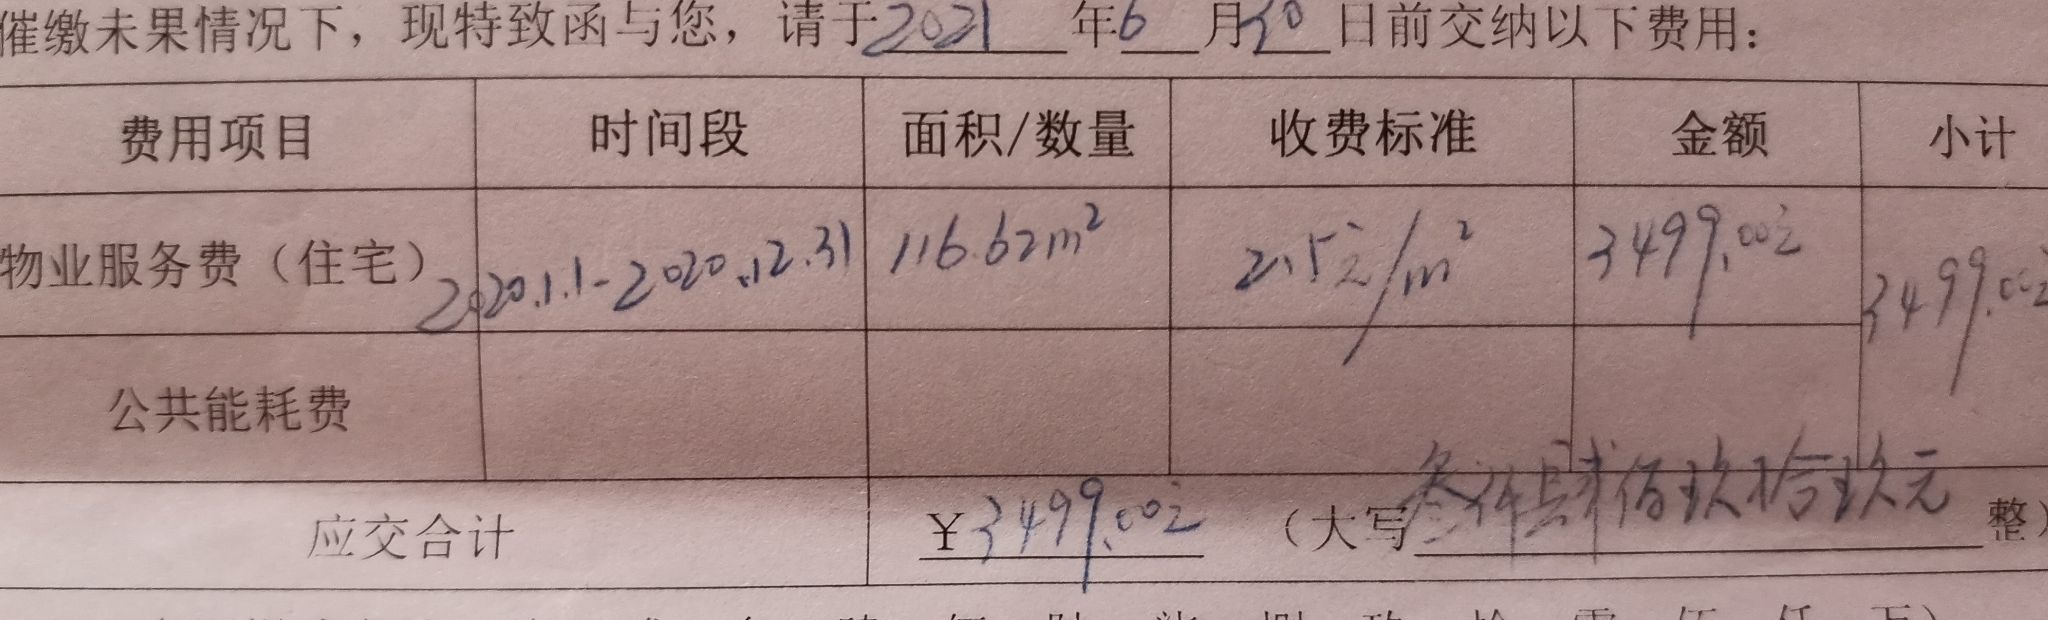 催缴未果情况下，现特致函与您，请于2021年6月30日前交纳以下费用：
费用项目 时间段 面积/数量 收费标准 金额 小计
物业服务费（住宅） 2020.1.1-2020.12.31 116.62m² 2.5元/m² 3499.00元 3499.00元
公共能耗费
应交合计 ¥3499.00元 （大写叁仟肆佰玖拾玖元整）